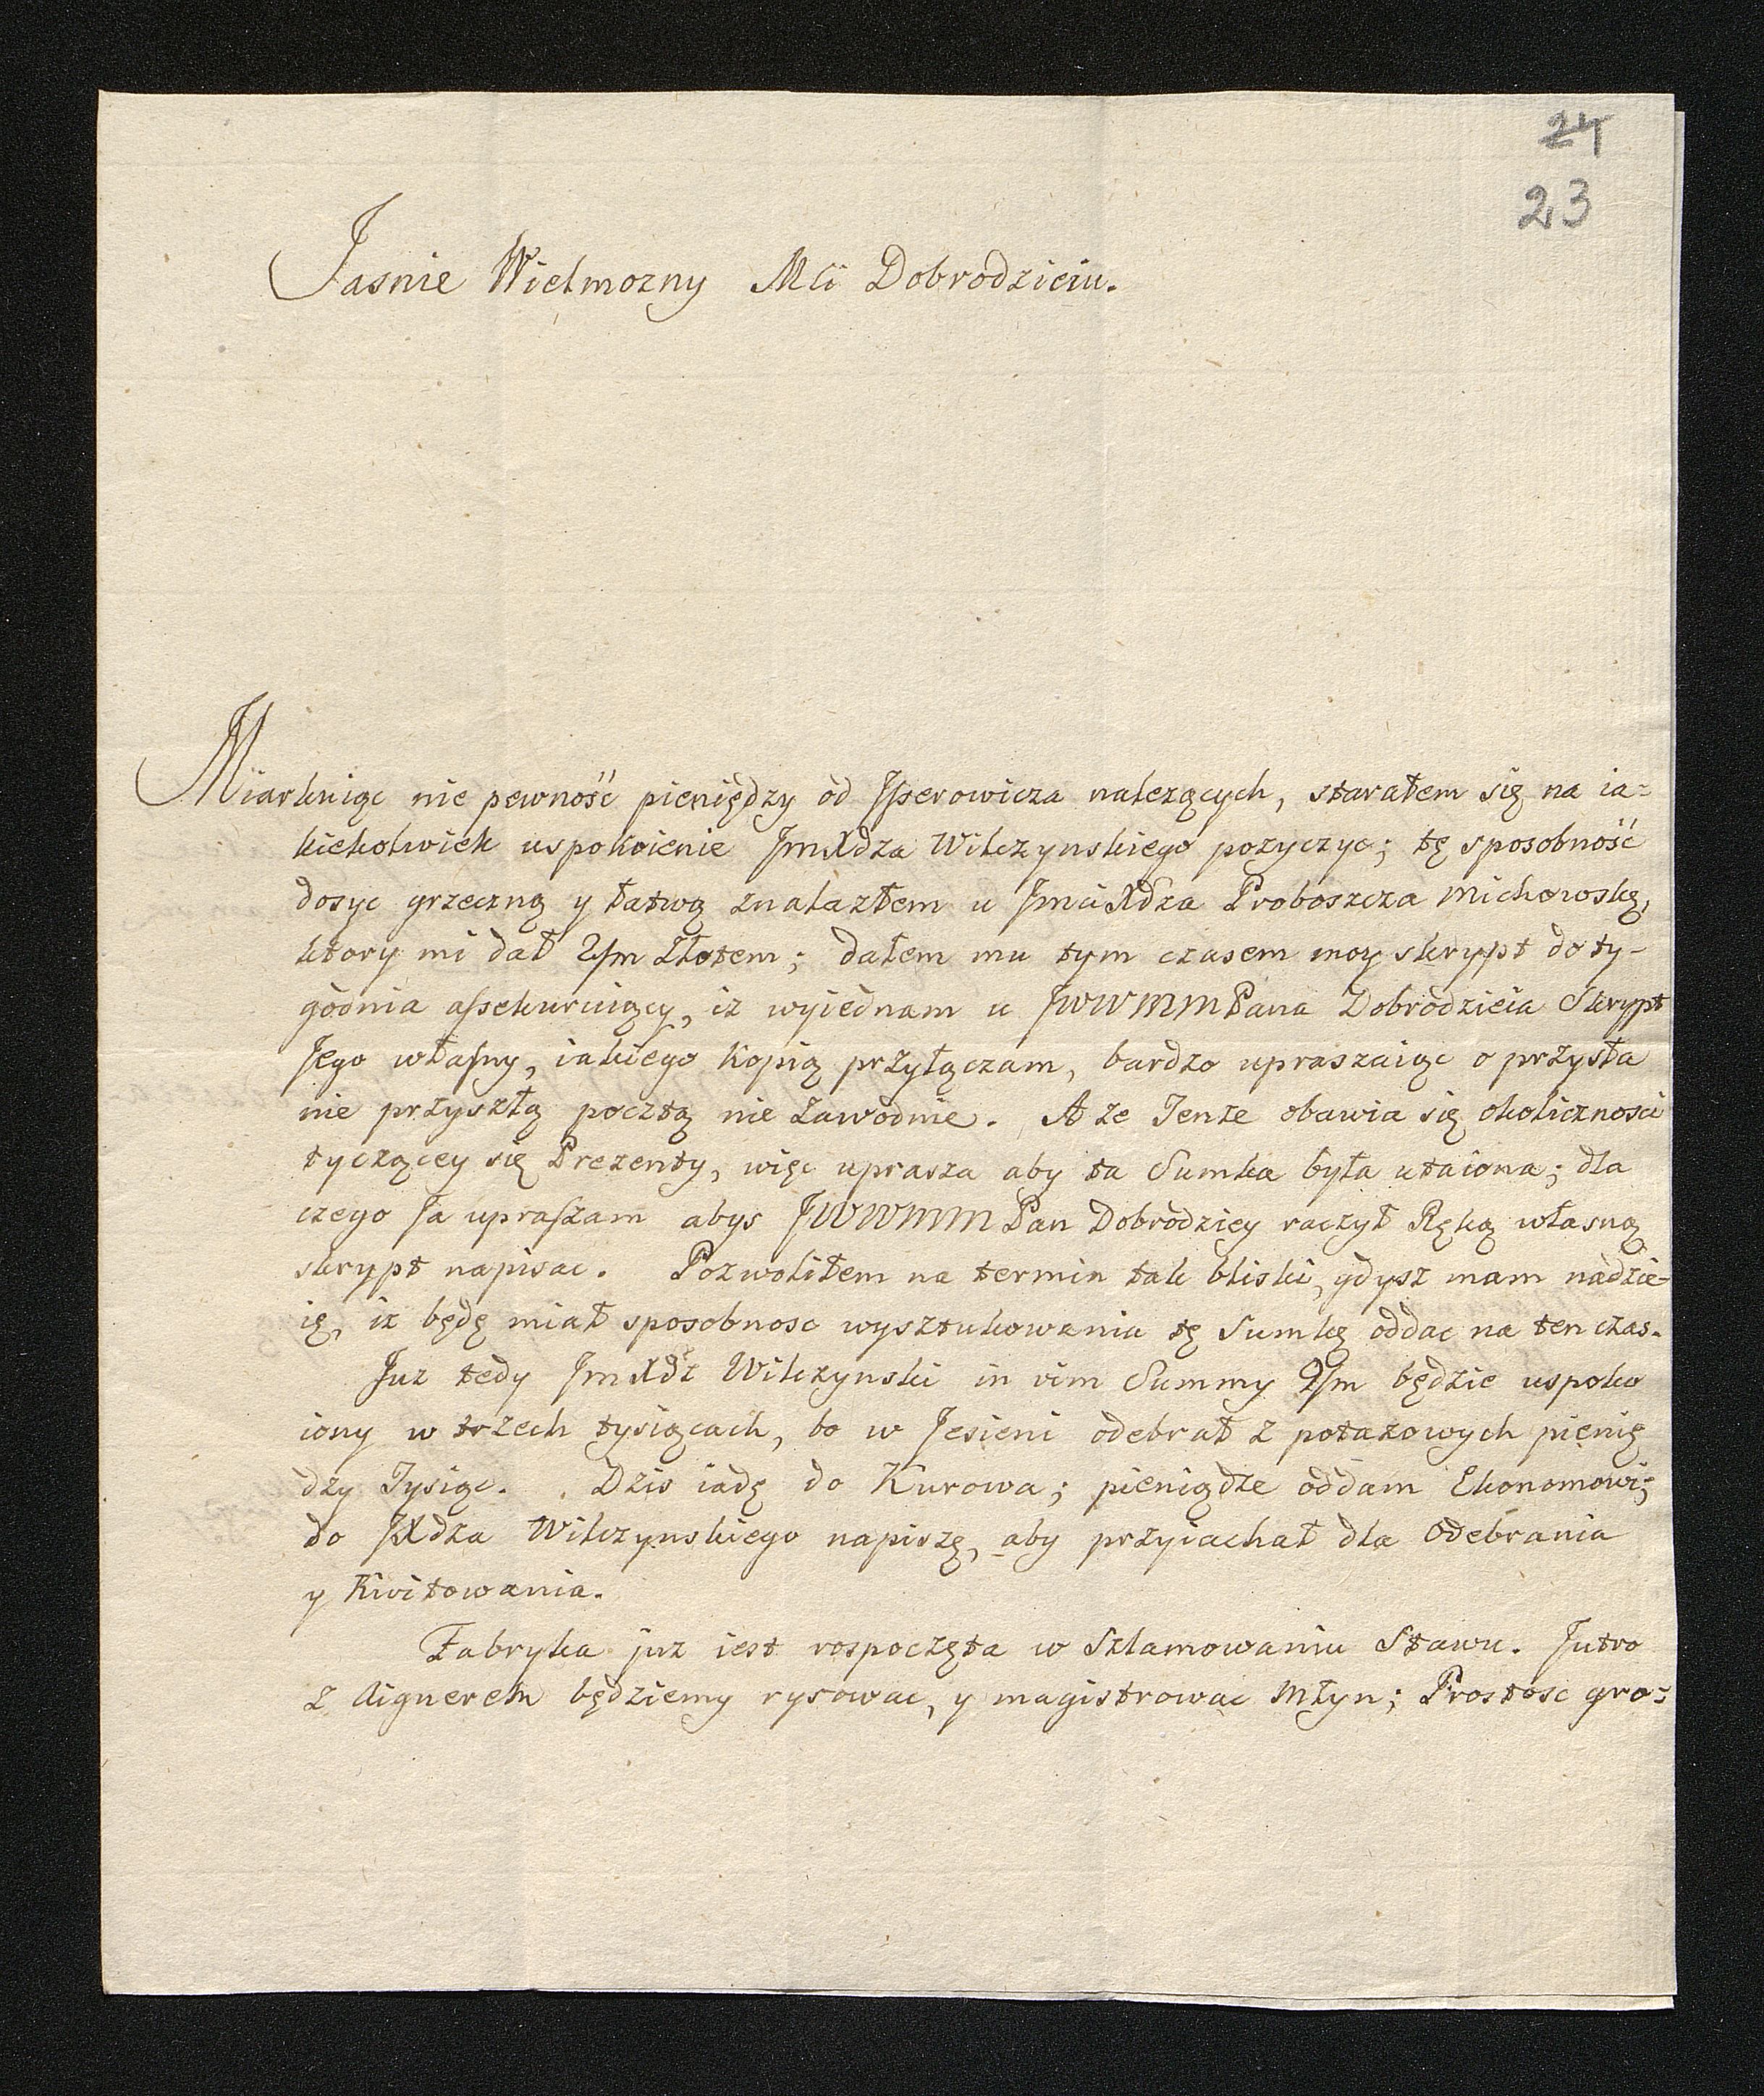 24
23
Jasnie Wielmozny Mci Dobrodzieiu.
Miarkuiąc nie pewność pieniędzy od Jserowicza nalezących, starałem się na ia=
kiekolwiek uspokoienie JmXdza Wilczynskiego pozyczyc; tę sposobność
dosyc grzeczną y łatwą znalazłem u JmciXdza Proboszcza Michowskę,
ktory mi dał 2/m Złotem; dałem mu tym czasem moy skrypt do ty-
godnia assekuruiący, iz wyiednam u JWWMMPana Dobrodzieia Skrypt
Jego własny, iakiego kopią przyłączam, bardzo upraszaiąc o przysła
nie przyszłą pocztą nie zawodnie. A ze Tenze obawia się okolicznosci
tyczącey się Prezenty, więc uprasza aby ta Sumka była utaiona; dla
czego Ja upraszam abys JWWMM Pan Dobrodziey raczył Ręką własną
skrypt napisac. Pozwoliłem na termin tak bliski, gdysz mam nadzie-
ię, iz będę miał sposobnosc wysztukowania tę Sumkę oddac na ten czas.
Juz tedy JmXdz Wilczynski in vim Summy 9/m będzie uspoko
iony w trzech tysiącach, bo w Jesieni odebrał z potazowych pienię
dzy Tysiąc. Dzis iadę do Kurowa; pieniądze oddam Ekonomowi;
do JXdza Wilczynskiego napiszę, aby przyiachał dla Odebrania
y Kwitowania.
Fabryka juz iest rospoczęta w Szlamowaniu Stawu. Jutro
z Aignerem będziemy rysowac, y magistrowac Młyn; Prostosc gro=